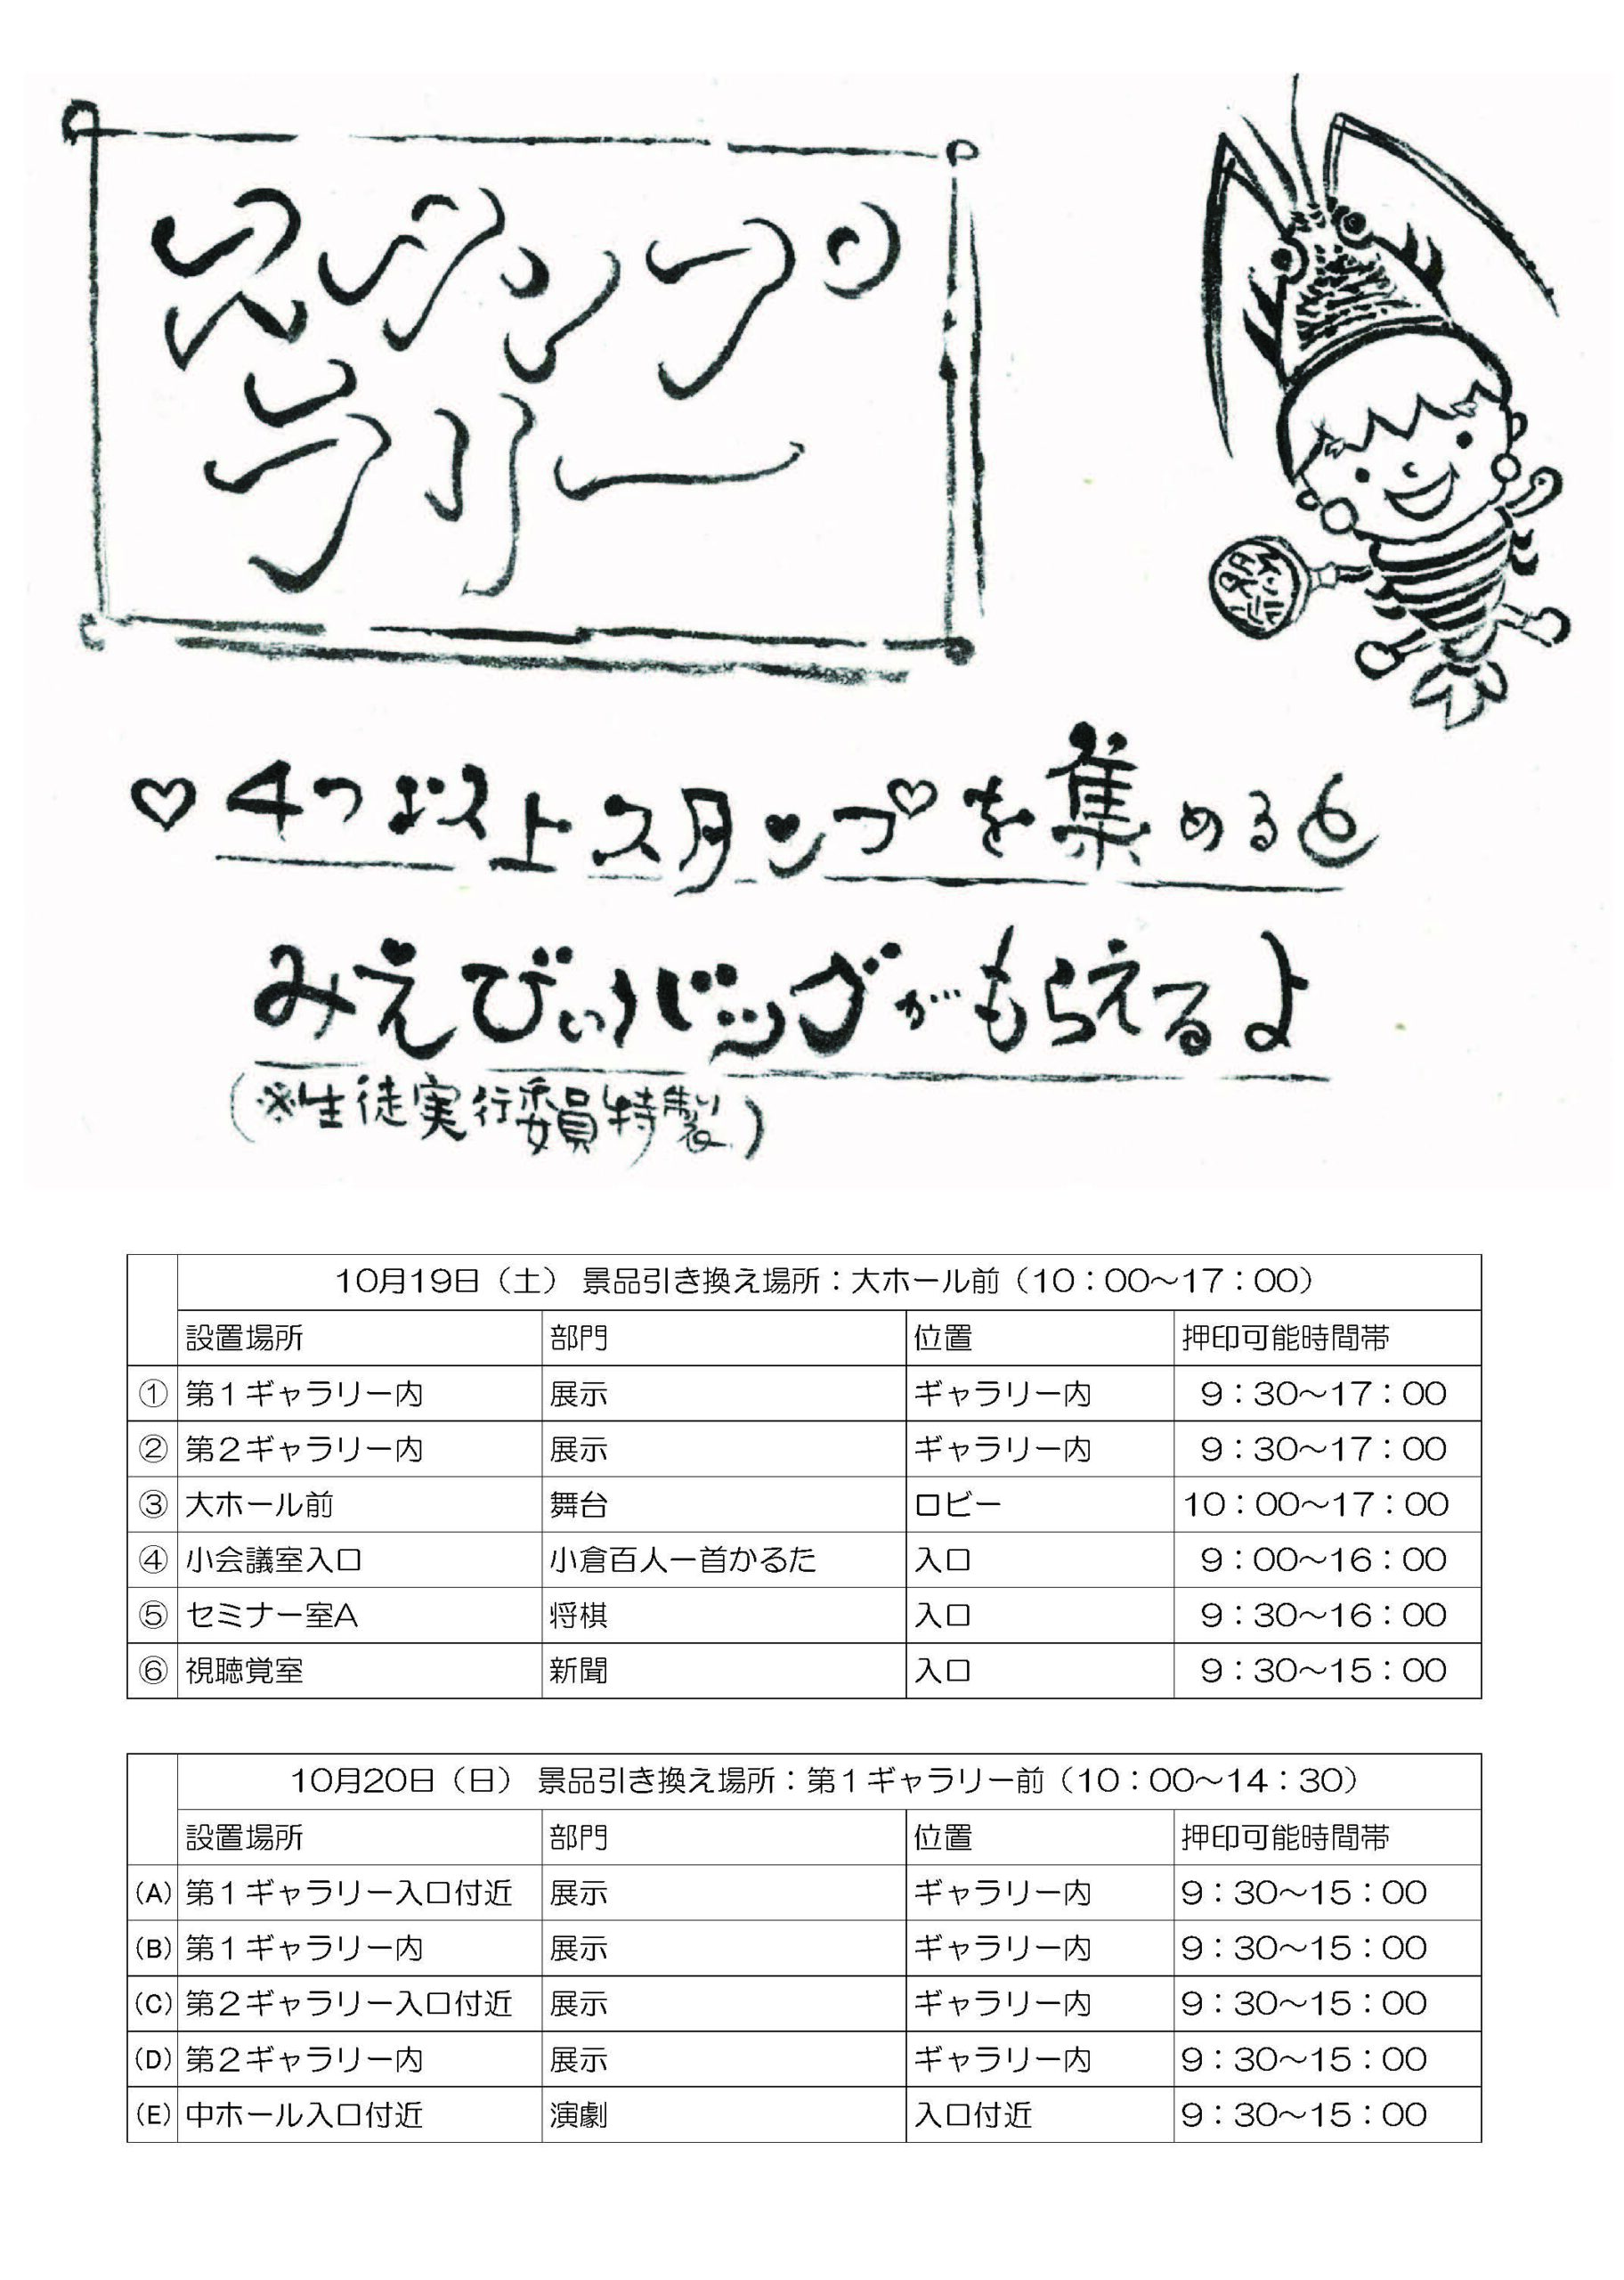 スタンプ
ラリー
♡4つ以上スタンプを集めると
みえびぃバッグがもらえるよ
(※生徒実行委員特製)
10月19日（土） 景品引き換え場所：大ホール前（10：00～17：00）
設置場所 部門 位置 押印可能時間帯
① 第1ギャラリー内 展示 ギャラリー内 9：30～17：00
② 第2ギャラリー内 展示 ギャラリー内 9：30～17：00
③ 大ホール前 舞台 ロビー 10：00～17：00
④ 小会議室入口 小倉百人一首かるた 入口 9：00～16：00
⑤ セミナー室A 将棋 入口 9：30～16：00
⑥ 視聴覚室 新聞 入口 9：30～15：00
10月20日（日） 景品引き換え場所：第1ギャラリー前（10：00～14：30）
設置場所 部門 位置 押印可能時間帯
(A) 第1ギャラリー入口付近 展示 ギャラリー内 9：30～15：00
(B) 第1ギャラリー内 展示 ギャラリー内 9：30～15：00
(C) 第2ギャラリー入口付近 展示 ギャラリー内 9：30～15：00
(D) 第2ギャラリー内 展示 ギャラリー内 9：30～15：00
(E) 中ホール入口付近 演劇 入口付近 9：30～15：00